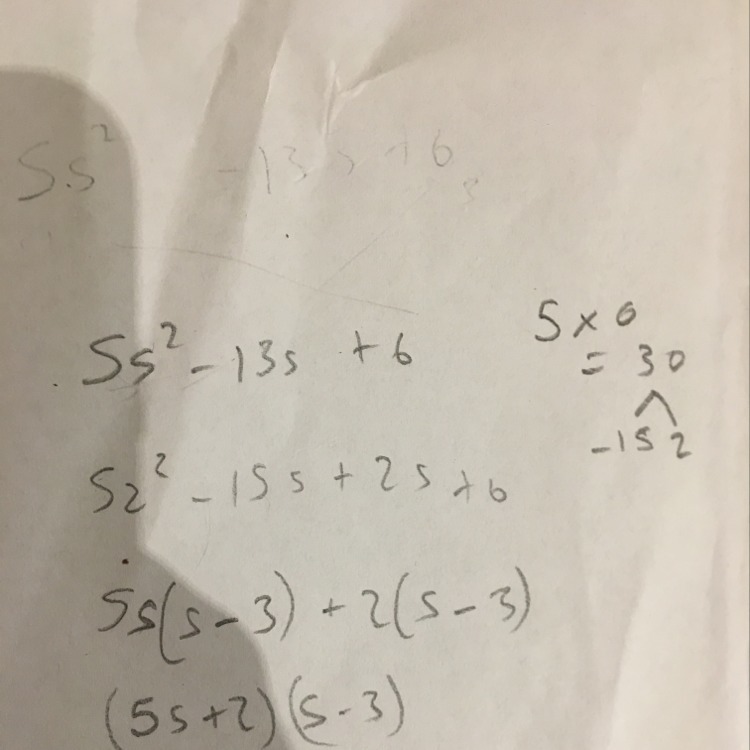 5s² -13s +6
5s² - 13s + 6
5 × 6
= 30
-15 2
5z² - 15s + 2s + 6
5s(s-3) + 2(s-3)
(5s+2)(s-3)